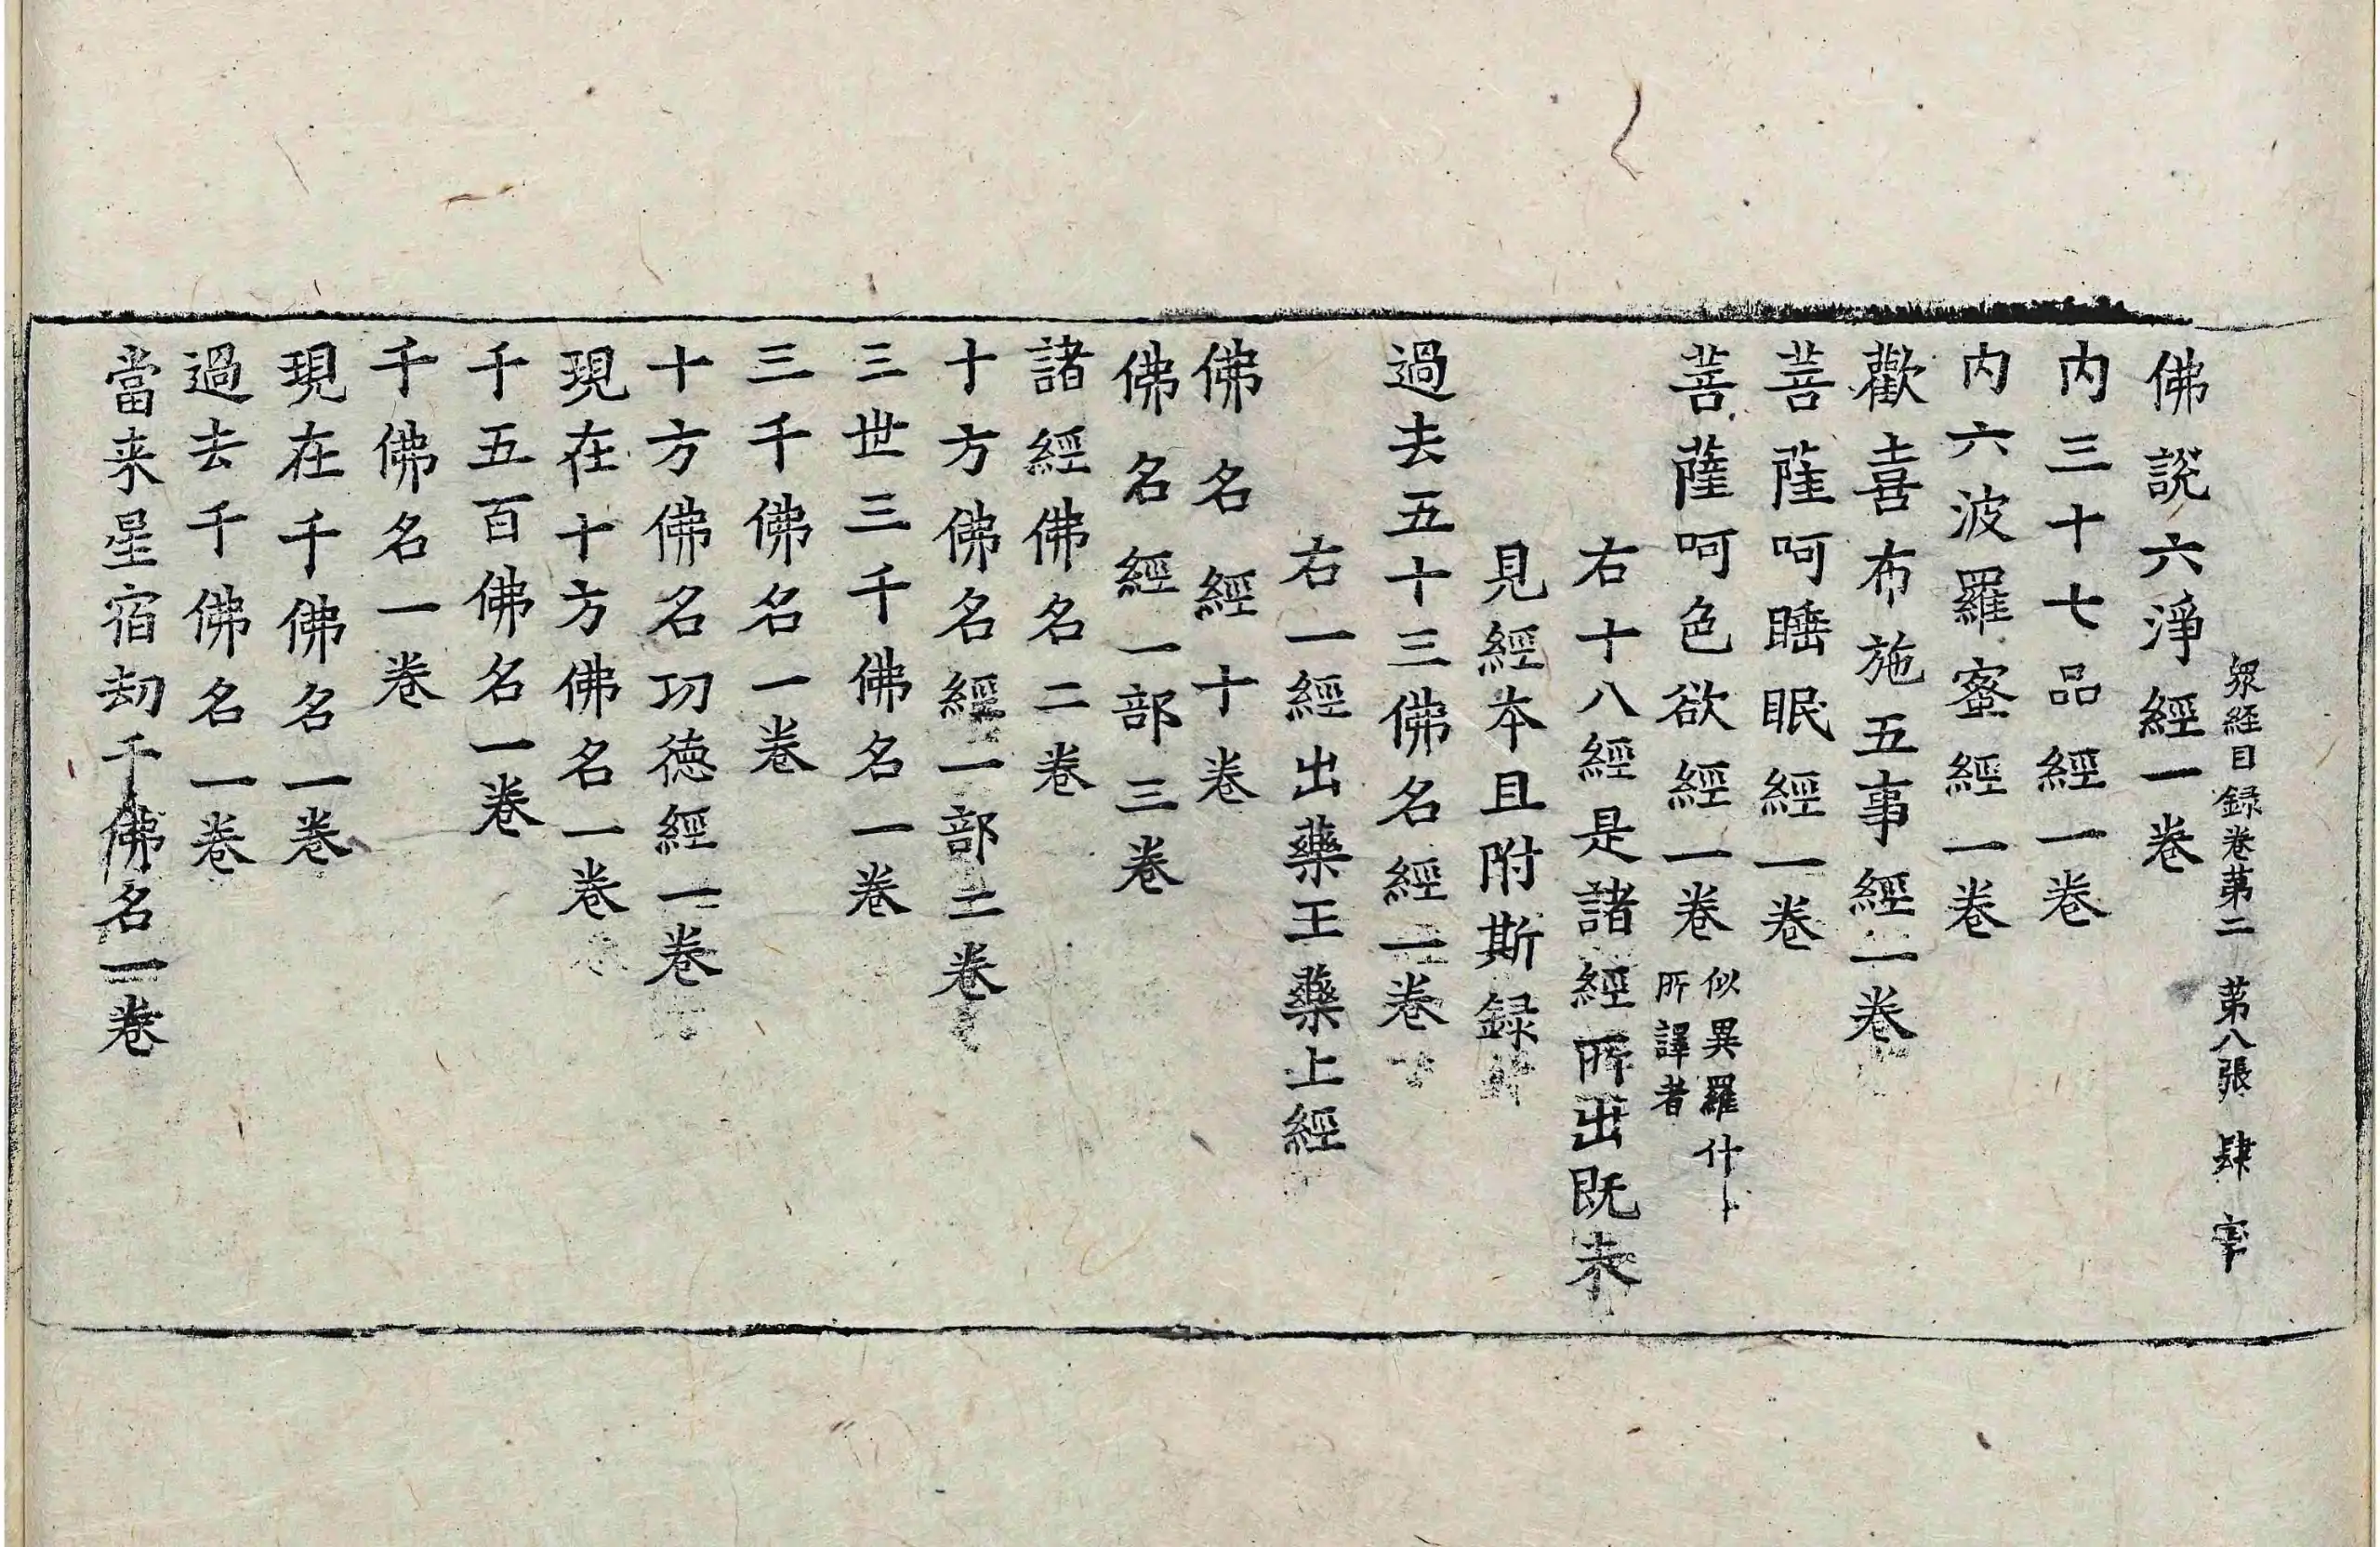 衆経目録卷第二　第八張　肆字
佛説六淨經一卷
内三十七品經一卷
内六波羅蜜經一卷
歡喜布施五事經一卷
菩薩呵睡眠經一卷
菩薩呵色欲經一卷
似異羅什
所譯者
右十八經是諸經所出既未
見經本且附斯録
過去五十三佛名經一卷
右一經出藥王藥上經
佛名經十卷
佛名經一部三卷
諸經佛名二卷
十方佛名經一部二卷
三世三千佛名一卷
三千佛名一卷
十方佛名功徳經一卷
現在十方佛名一卷
千五百佛名一卷
千佛名一卷
現在千佛名一卷
過去千佛名一卷
當来星宿劫千佛名一卷